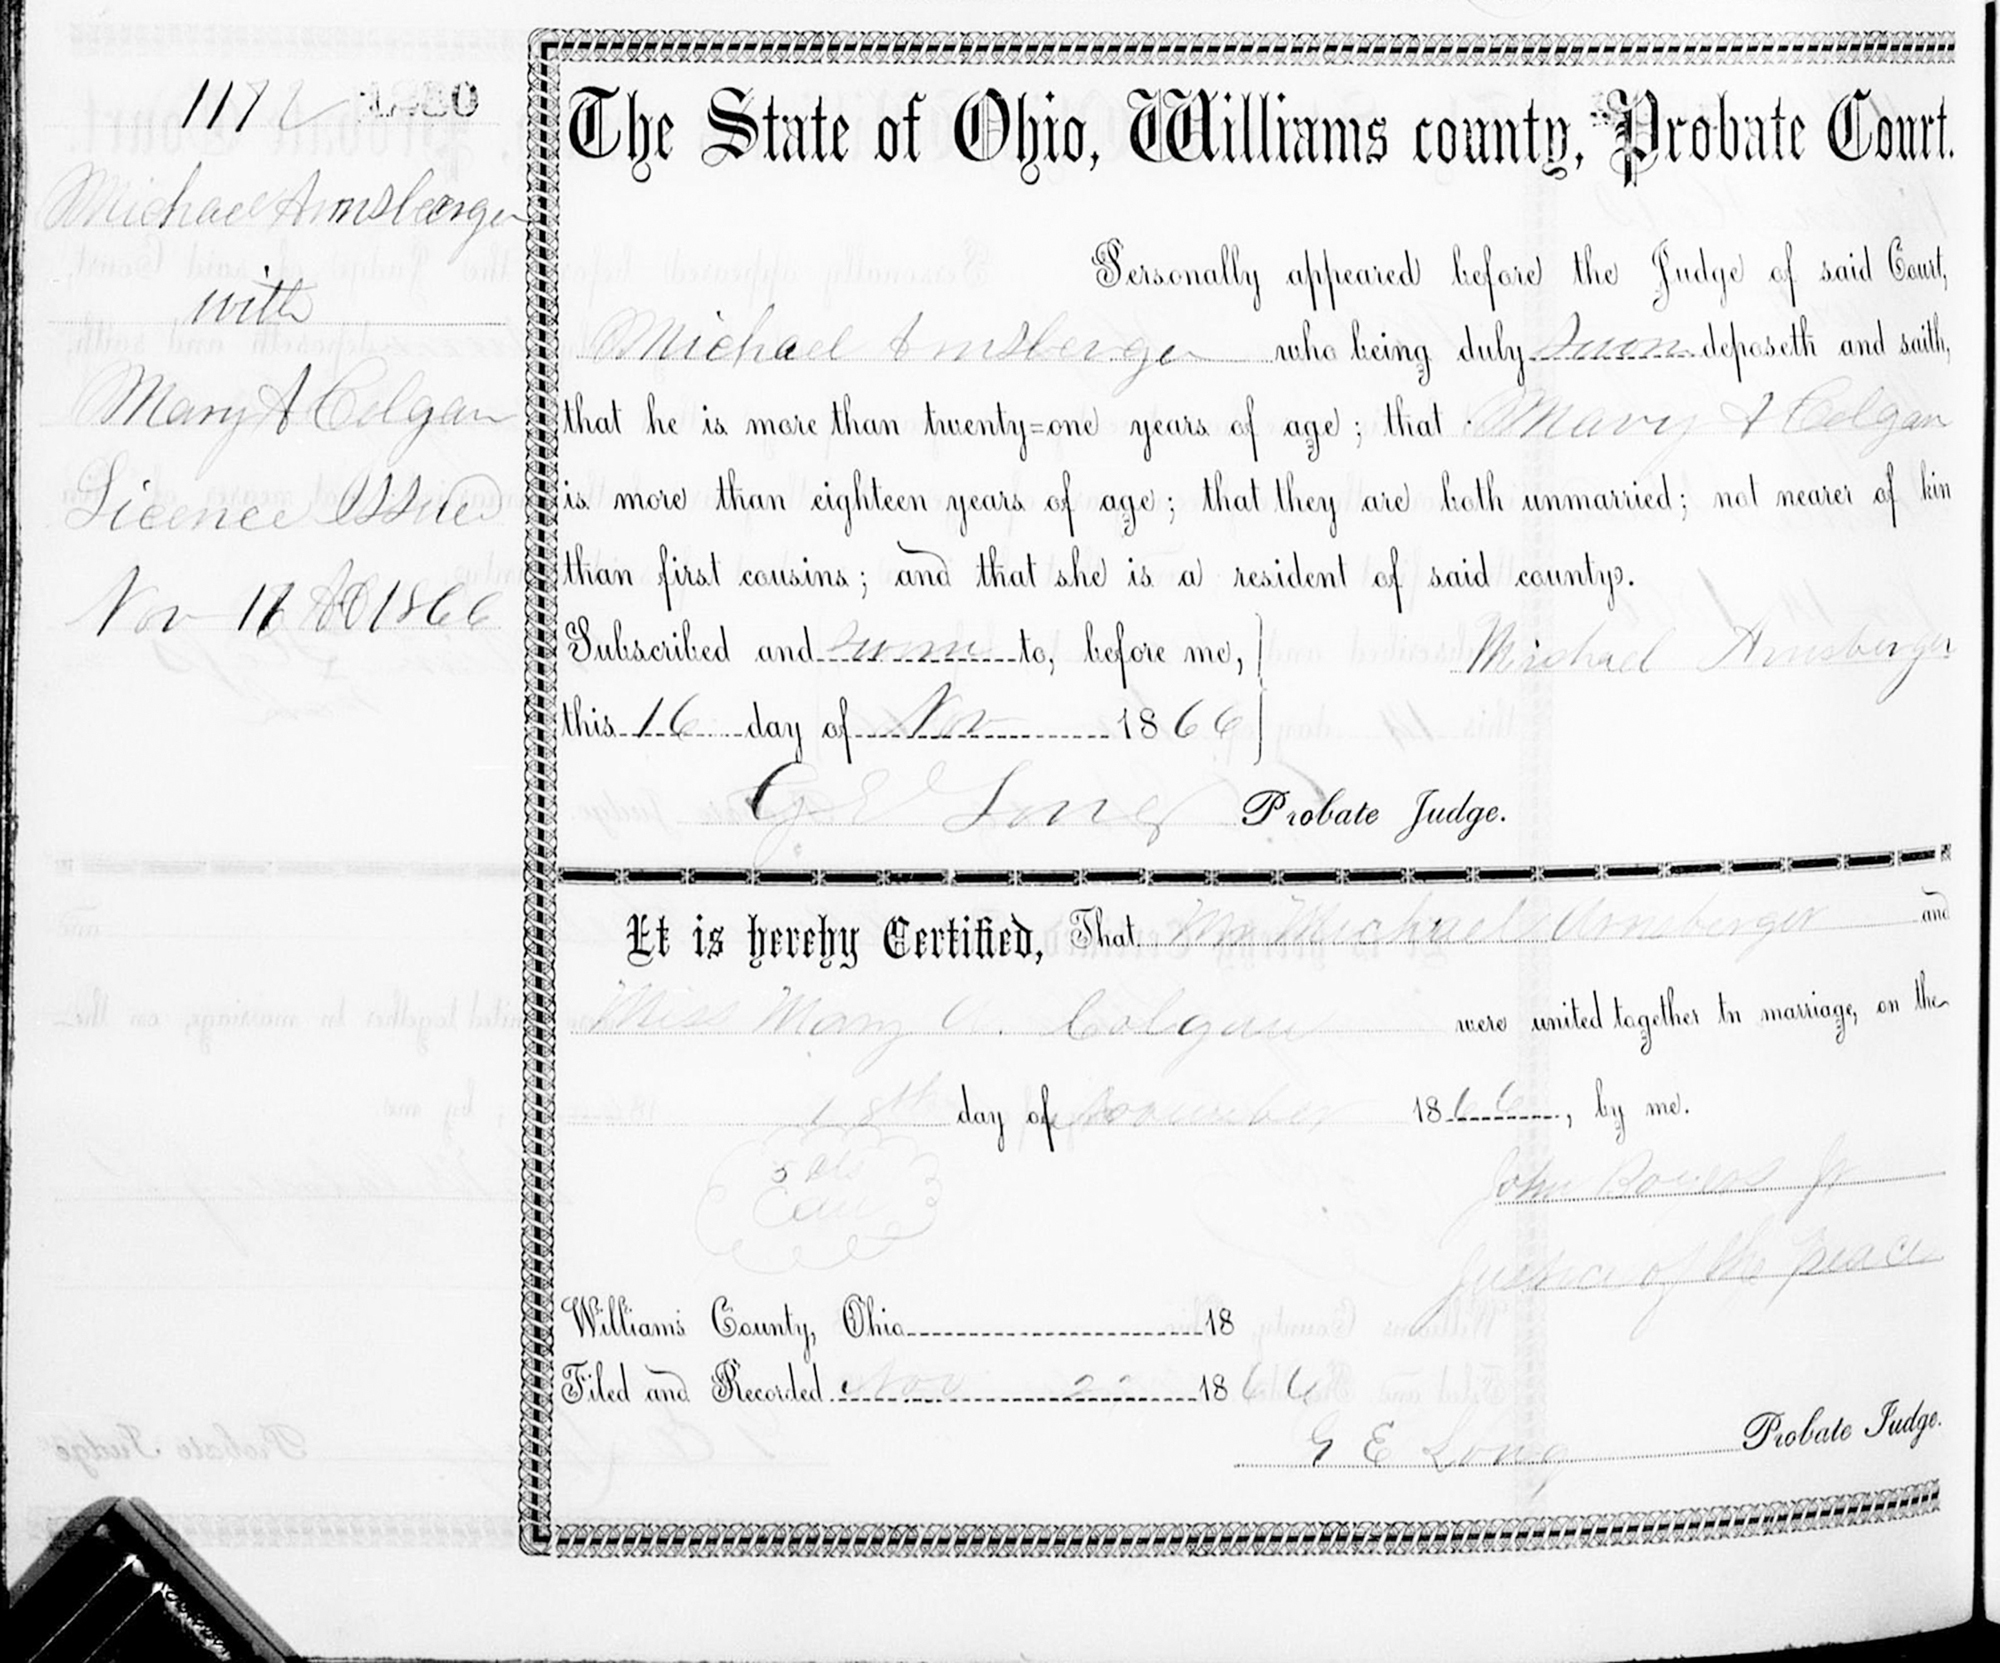 1172 1250
Michael Arnsberger
with
Mary A Colgan
Licence Issued
Nov 16 AD 1866
The State of Ohio, Williams county, Probate Court.
Personally appeared before the Judge of said Court,
Michael Arnsberger who being duly sworn deposeth and saith,
that he is more than twenty=one years of age; that Mary A Colgan
is more than eighteen years of age; that they are both unmarried; not nearer of kin
than first cousins; and that she is a resident of said county.
Subscribed and sworn to, before me,
Michael Arnsberger
this 16 day of Nov 1866
G E Long Probate Judge.
It is hereby Certified, That Mr Michael Arnsberger and
Miss Mary A. Colgan were united together in marriage, on the
18th day of November 1866, by me.
5 cts
John Jr
Justice of the peace
Williams County, Ohio 18
Filed and Recorded Nov 22 1866
G E Long Probate Judge.